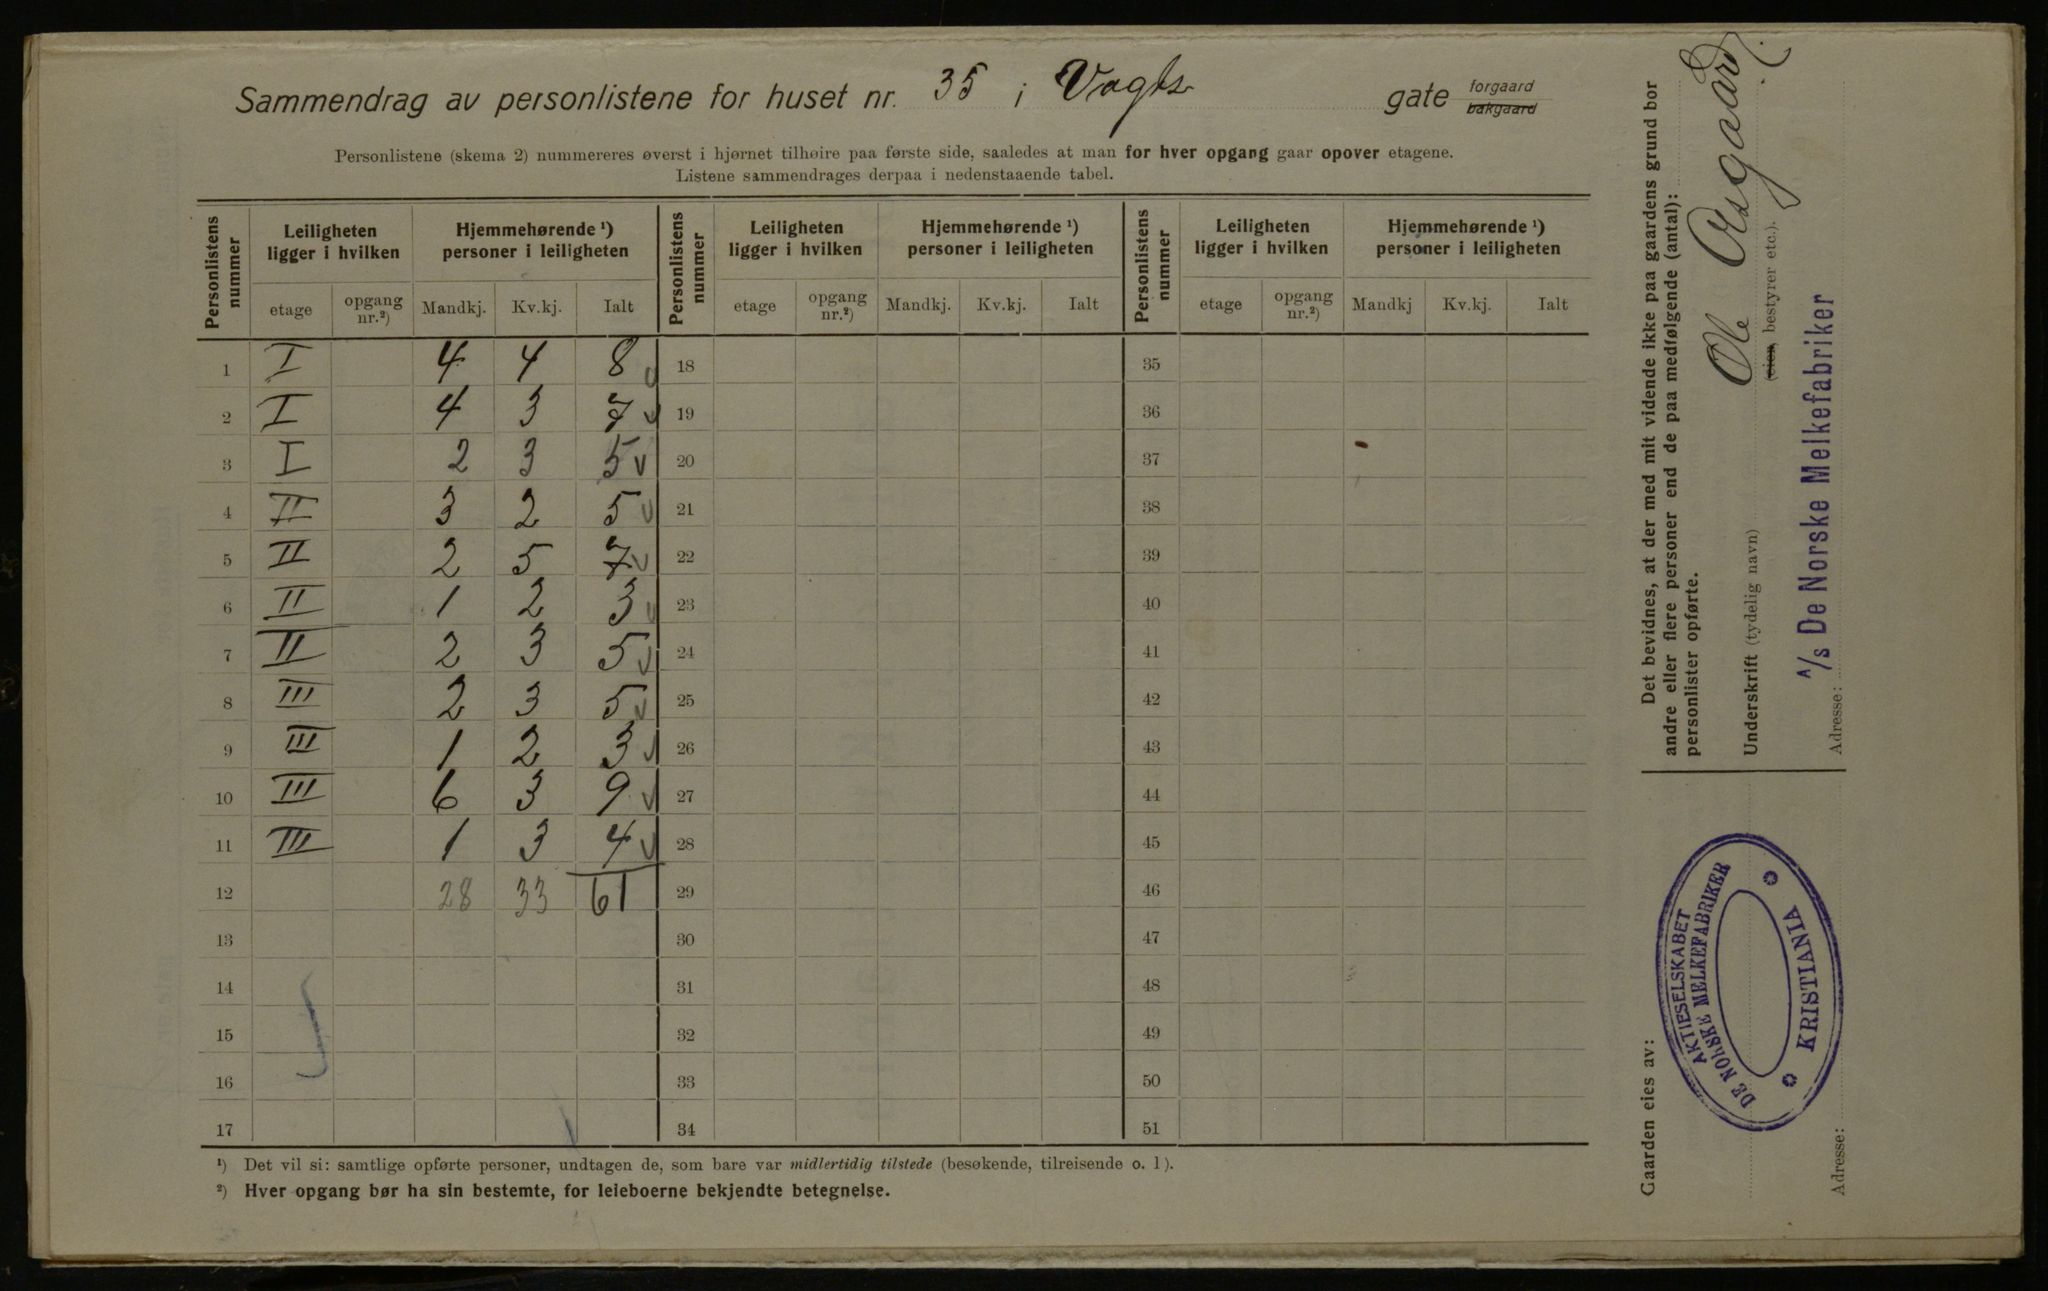 Sammendrag av personlistene for huset nr. 35 i Vogts gate forgaard bakgaard
Personlistene (skema 2) nummereres øverst i hjørnet tilhøire paa første side, saaledes at man for hver opgang gaar opover etagene.
Listene sammendrages derpaa i nedenstaaende tabel.
Personlistens nummer Leiligheten ligger i hvilken Hjemmehørende ¹) personer i leiligheten Personlistens nummer Leiligheten ligger i hvilken Hjemmehørende ¹) personer i leiligheten Personlistens nummer Leiligheten ligger i hvilken Hjemmehørende ¹) personer i leiligheten
etage opgang nr.²) Mandkj. Kv.kj. Ialt etage opgang nr.²) Mandkj. Kv.kj. Ialt etage opgang nr.²) Mandkj Kv.kj. Ialt
1 I 4 4 8 18 35
2 I 4 3 7 19 36
3 I 2 3 5 20 37
4 II 3 2 5 21 38
5 II 2 5 7 22 39
6 II 1 2 3 23 40
7 II 2 3 5 24 41
8 III 2 3 5 25 42
9 III 1 2 3 26 43
10 III 6 3 9 27 44
11 III 1 3 4 28 45
12 28 33 61 29 46
13 30 47
14 31 48
15 32 49
16 33 50
17 34 51
¹) Det vil si: samtlige opførte personer, undtagen de, som bare var midlertidig tilstede (besøkende, tilreisende o. l).
²) Hver opgang bør ha sin bestemte, for leieboerne bekjendte betegnelse.
Det bevidnes, at der med mit vidende ikke paa gaardens grund bor
andre eller flere personer end de paa medfølgende (antal):
personlister opførte.
Ole Aasgaard
Underskrift (tydelig navn) (eier, bestyrer etc.).
A/s De Norske Melkefabriker
Adresse:
Gaarden eies av:
AKTIESELSKABET
DE NORSKE MELKEFABRIKER
KRISTIANIA
Adresse: